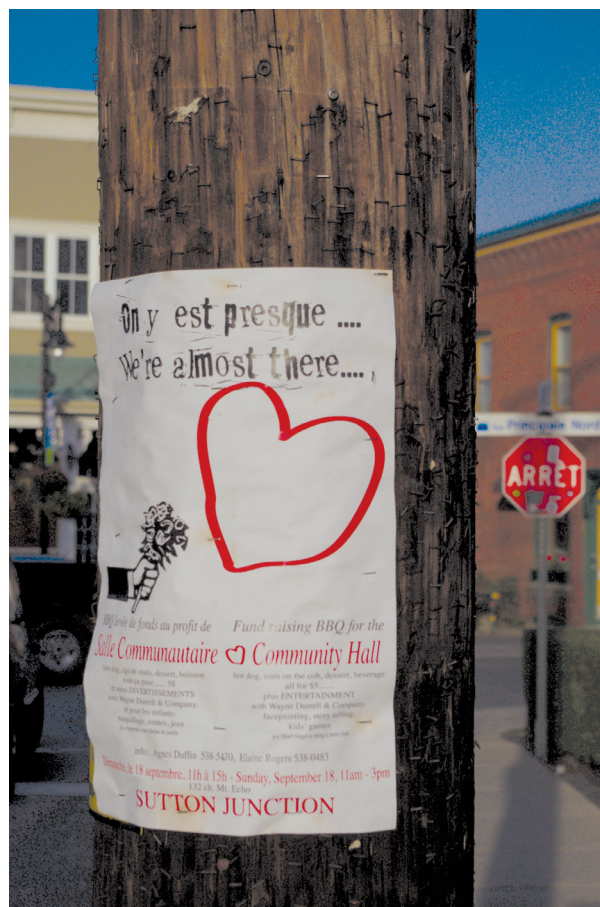 On y est presque ....
We're almost there....,
BBQ levée de fonds au profit de
Fund raising BBQ for the
Salle Communautaire
Community Hall
hot dog, épi de maïs, dessert, boisson
tout ça pour...... 5$
et aussi DIVERTISSEMENTS
avec Wayne Durrell & Company,
et pour les enfants:
maquillage, contes, jeux
hot dog, corn on the cob, dessert, beverage
all for $5......
plus ENTERTAINMENT
with Wayne Durrell & Company,
facepainting, story telling,
kids' games
info: Agnes Duffin 538-5470, Elaine Rogers 538-0483
Dimanche, le 18 septembre, 11h à 15h - Sunday, September 18, 11am - 3pm
132 ch. Mt. Echo
SUTTON JUNCTION
Principale Nord
ARRÊT